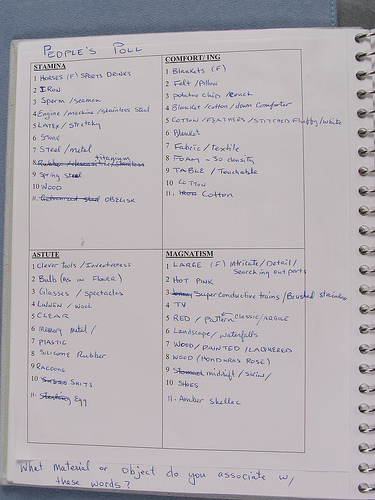 PEOPLE'S POLL
STAMINA
1 HORSES (F) SPORTS DRINKS
2 IRON
3 Sperm / semen
4 Engine / machine / stainless steel
5 LATEX / Stretchy
6 Stone
7 Steel / metal
8 titanium
9 Spring steel
10 WOOD
11. OBELISK
COMFORT/ING
1 Blankets (F)
2 Felt / Pillow
3 potato chip / couch
4 Blanket / cotton / down Comforter
5 COTTON / FEATHERS / STITCHED Fluffy / white
6 Blanket
7 Fabric / Textile
8 FOAM - 30 density
9 TABLE / Touchable
10 COTTON
11. Cotton
ASTUTE
1 Clever tools / Inventiveness
2 Bulb (AS IN FLOWER)
3 Glasses / spectacles
4 LINEN / WOOL
5 CLEAR
6 Memory metal /
7 PLASTIC
8 SILICONE Rubber
9 RACOONS
10 SUITS
11. Egg
MAGNATISM
1 LARGE (F) Intricate / Detail /
Searching out parts
2 HOT PINK
3 Superconductive trains / Brushed stainless
4 TV
5 RED / pattern - CLASSIC / ARGYLE
6 Landscape / waterfalls
7 WOOD / PAINTED / LAQUERED
8 WOOD (HONDURAS ROSE)
9 Stomach midriff / SKIN /
10 SHOES
11. Amber Shellac
What Material or object do you associate w/
these words?